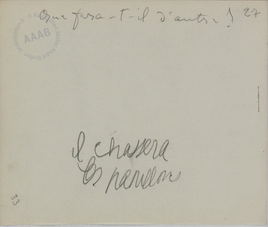 Que fera-t-il d'autre ! 27
AAAB
Il chassera
les papillons
33